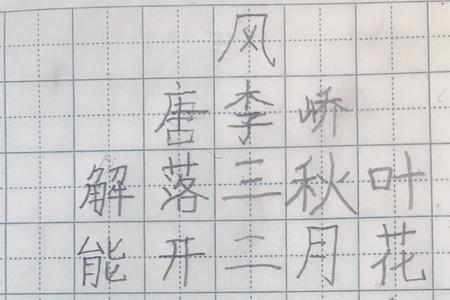 风
唐李峤
解落三秋叶
能开二月花